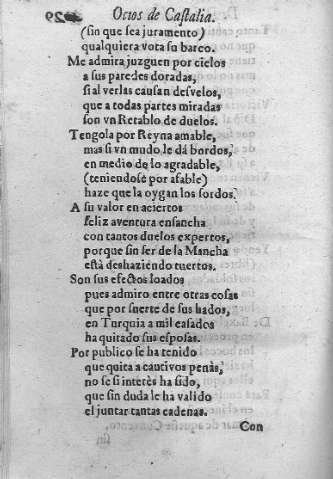 29
Ocios de Castalia.
(sin que sea juramento)
qualquiera vota su barco.
Me admira juzguen por cielos
a sus paredes doradas,
si al verlas causan desvelos,
que a todas partes miradas
son vn Retablo de duelos.
Tengola por Reyna amable,
mas si vn mudo le dà bordos,
en medio de lo agradable,
(teniendose por afable)
haze que la oygan los sordos.
A su valor en aciertos
feliz aventura ensancha
con tantos duelos expertos,
porque sin ser de la Mancha
està deshaziendo tuertos.
Son sus efectos loados
pues admiro entre otras cosas
que por suerte de sus hados,
en Turquia a mil casados
ha quitado sus esposas.
Por publico se ha tenido
que quita a cautivos penàs,
no se si interès ha sido,
que sin duda le ha valido
el juntar tantas cadenas.
Con